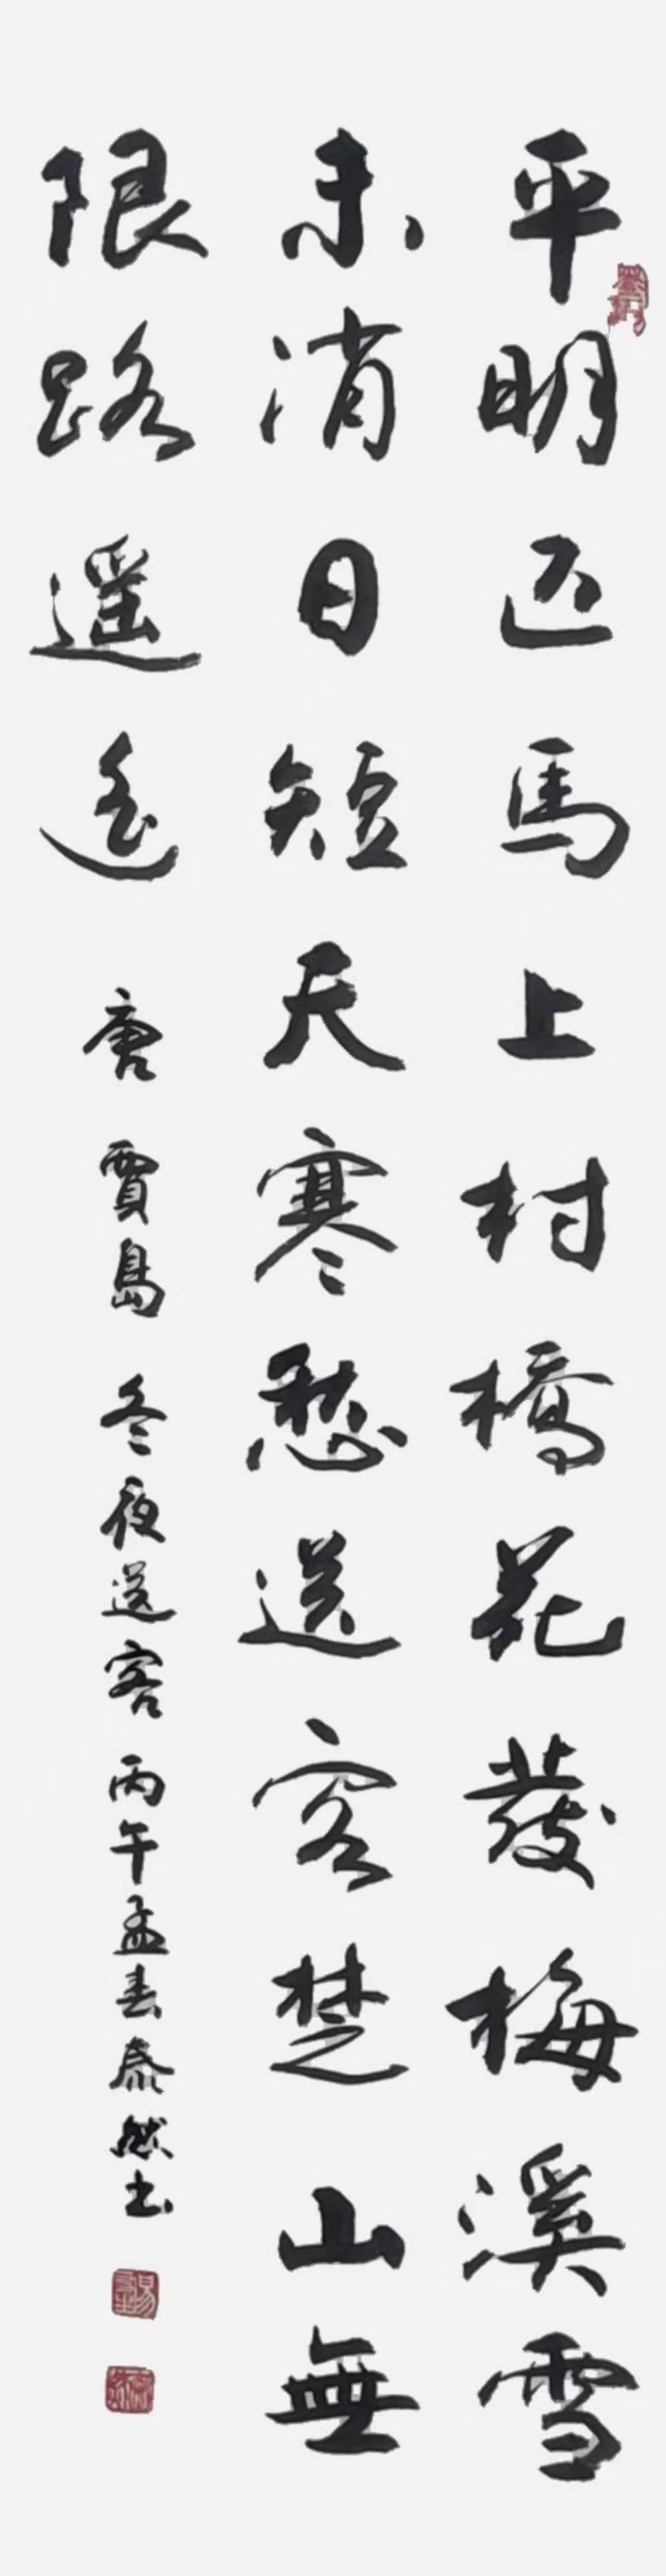 平明匹馬上村橋花發梅溪雪
未消日短天寒愁送客楚山無
限路遥遥 唐 賈島 冬夜送客 丙午孟春泰然书